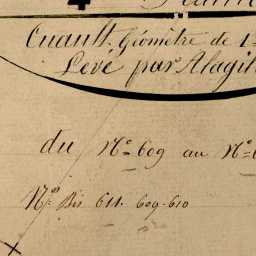 4
Cuault, Géomètre de 1
Levé par Magit
du N° 609 au N° 6
N.os Bis 611. 609-610